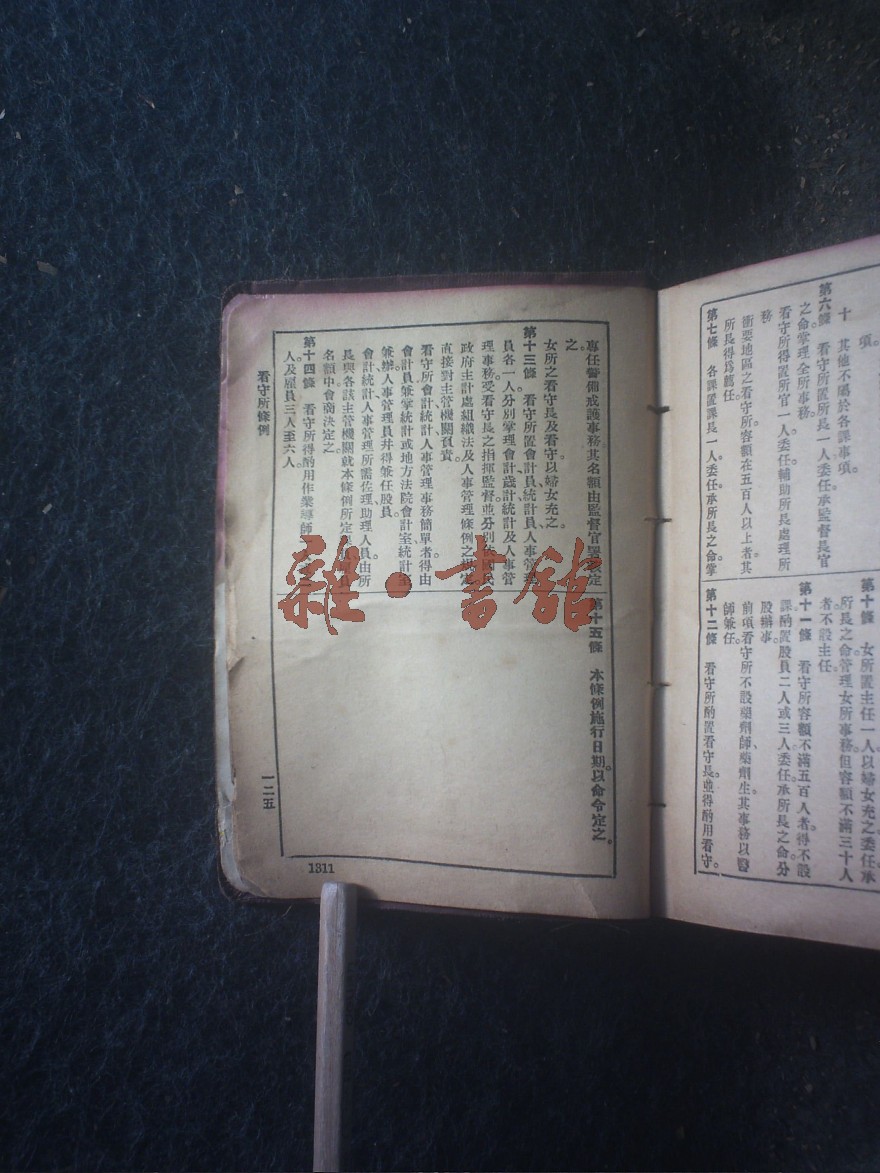 項。
十　其他不屬於各課事項。
第六條　看守所置所長一人、委任、承監督長官
之命、掌理全所事務。
看守所得置所官一人、委任、輔助所長處理所
務。
衝要地區之看守所、容額在五百人以上者、其
所長得爲薦任。
第七條　各課置課長一人、委任、承所長之命、掌
第十條　女所置主任一人、以婦女充之、委任、承
所長之命、管理女所事務、但容額不滿三十人
者、不設主任。
第十一條　看守所容額不滿五百人者、得不設
課、酌置股員二人或三人、委任、承所長之命、分
股辦事。
前項看守所不設藥劑師、藥劑生、其事務以醫
師兼任。
第十二條　看守所酌置看守長、並得酌用看守。
專任警備戒護事務、其名額由監督官署核定
之。
女所之看守長及看守、以婦女充之。
第十三條　看守所置會計員、統計員、人事管理
員各一人、分別掌理會計、歲計、統計及人事管
理事務、受看守長之指揮監督、並分別依國民
政府主計處組織法及人事管理條例之規定、
直接對主管機關負責。
看守所會計、統計、人事管理事務簡單者、得由
會計員兼掌統計、或地方法院會計室、統計室
兼辦、人事管理員并得兼任股員。
會計、統計、人事管理所需佐理、助理人員、由所
長與各該主管機關就本條例所定
名額中會商決定之。
第十四條　看守所得酌用作業導師
人、及雇員三人至六人。
第十五條　本條例施行日期、以命令定之。
看守所條例
一二五
1311
雜·書舘